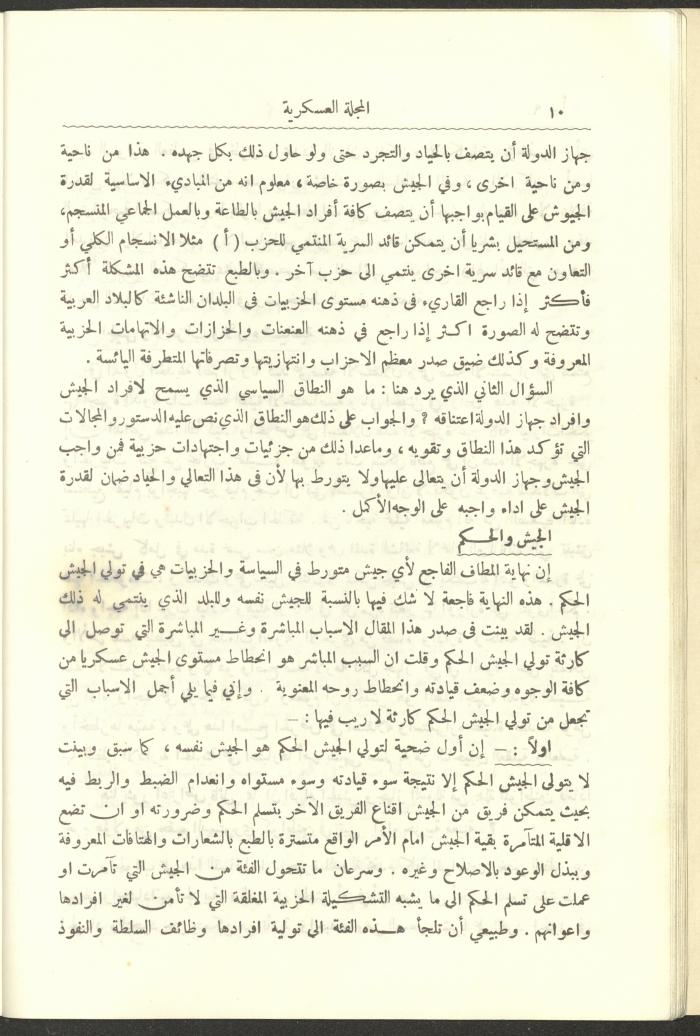 ١٠
المجلة العسكرية
جهاز الدولة أن يتصف بالحياد والتجرد حتى ولو حاول ذلك بكل جهده . هذا من ناحية
ومن ناحية اخرى ، وفي الجيش بصورة خاصة ، معلوم انه من المباديء الاساسية لقدرة
الجيوش على القيام بواجبها أن يتصف كافة أفراد الجيش بالطاعة وبالعمل الجماعي المنسجم،
ومن المستحيل بشريا أن يتمكن قائد السرية المنتمي للحزب ( أ ) مثلا الانسجام الكلي أو
التعاون مع قائد سرية اخرى ينتمي الى حزب آخر . وبالطبع تتضح هذه المشكلة أكثر
فأكثر إذا راجع القاريء في ذهنه مستوى الحزبيات في البلدان الناشئة كالبلاد العربية
وتتضح له الصورة اكثر إذا راجع في ذهنه العنعنات والحزازات والاتهامات الحزبية
المعروفة وكذلك ضيق صدر معظم الاحزاب وانتهازيتها وتصرفاتها المتطرفة اليائسة .
السؤال الثاني الذي يرد هنا : ما هو النطاق السياسي الذي يسمح لافراد الجيش
وافراد جهاز الدولة اعتناقه ؟ والجواب على ذلك هو النطاق الذي نص عليه الدستور والمجالات
التي تؤكد هذا النطاق وتقويه ، وماعدا ذلك من جزئيات واجتهادات حزبية فمن واجب
الجيش وجهاز الدولة أن يتعالى عليها ولا يتورط بها لأن في هذا التعالي والحياد ضمان لقدرة
الجيش على اداء واجبه على الوجه الأكمل .
الجيش والحكم
إن نهاية المطاف الفاجع لأي جيش متورط في السياسة والحزبيات هي في تولي الجيش
الحكم . هذه النهاية فاجعة لا شك فيها بالنسبة للجيش نفسه وللبلد الذي ينتمي له ذلك
الجيش . لقد بينت في صدر هذا المقال الاسباب المباشرة وغير المباشرة التي توصل الى
كارثة تولي الجيش الحكم وقلت ان السبب المباشر هو انحطاط مستوى الجيش عسكريا من
كافة الوجوه وضعف قيادته وانحطاط روحه المعنوية . وإني فيما يلي أجمل الاسباب التي
تجعل من تولي الجيش الحكم كارثة لا ريب فيها : -
اولاً : - إن أول ضحية لتولي الجيش الحكم هو الجيش نفسه ، كما سبق وبينت
لا يتولى الجيش الحكم إلا نتيجة سوء قيادته وسوء مستواه وانعدام الضبط والربط فيه
بحيث يتمكن فريق من الجيش اقناع الفريق الآخر بتسلم الحكم وضرورته او ان تضع
الاقلية المتآمرة بقية الجيش امام الأمر الواقع متسترة بالطبع بالشعارات والهتافات المعروفة
وببذل الوعود بالاصلاح وغيره . وسرعان ما تتحول الفئة من الجيش التي تآمرت او
عملت على تسلم الحكم الى ما يشبه التشكيلة الحزبية المغلقة التي لا تأمن لغير افرادها
واعوانهم . وطبيعي أن تلجأ هذه الفئة الى تولية افرادها وظائف السلطة والنفوذ